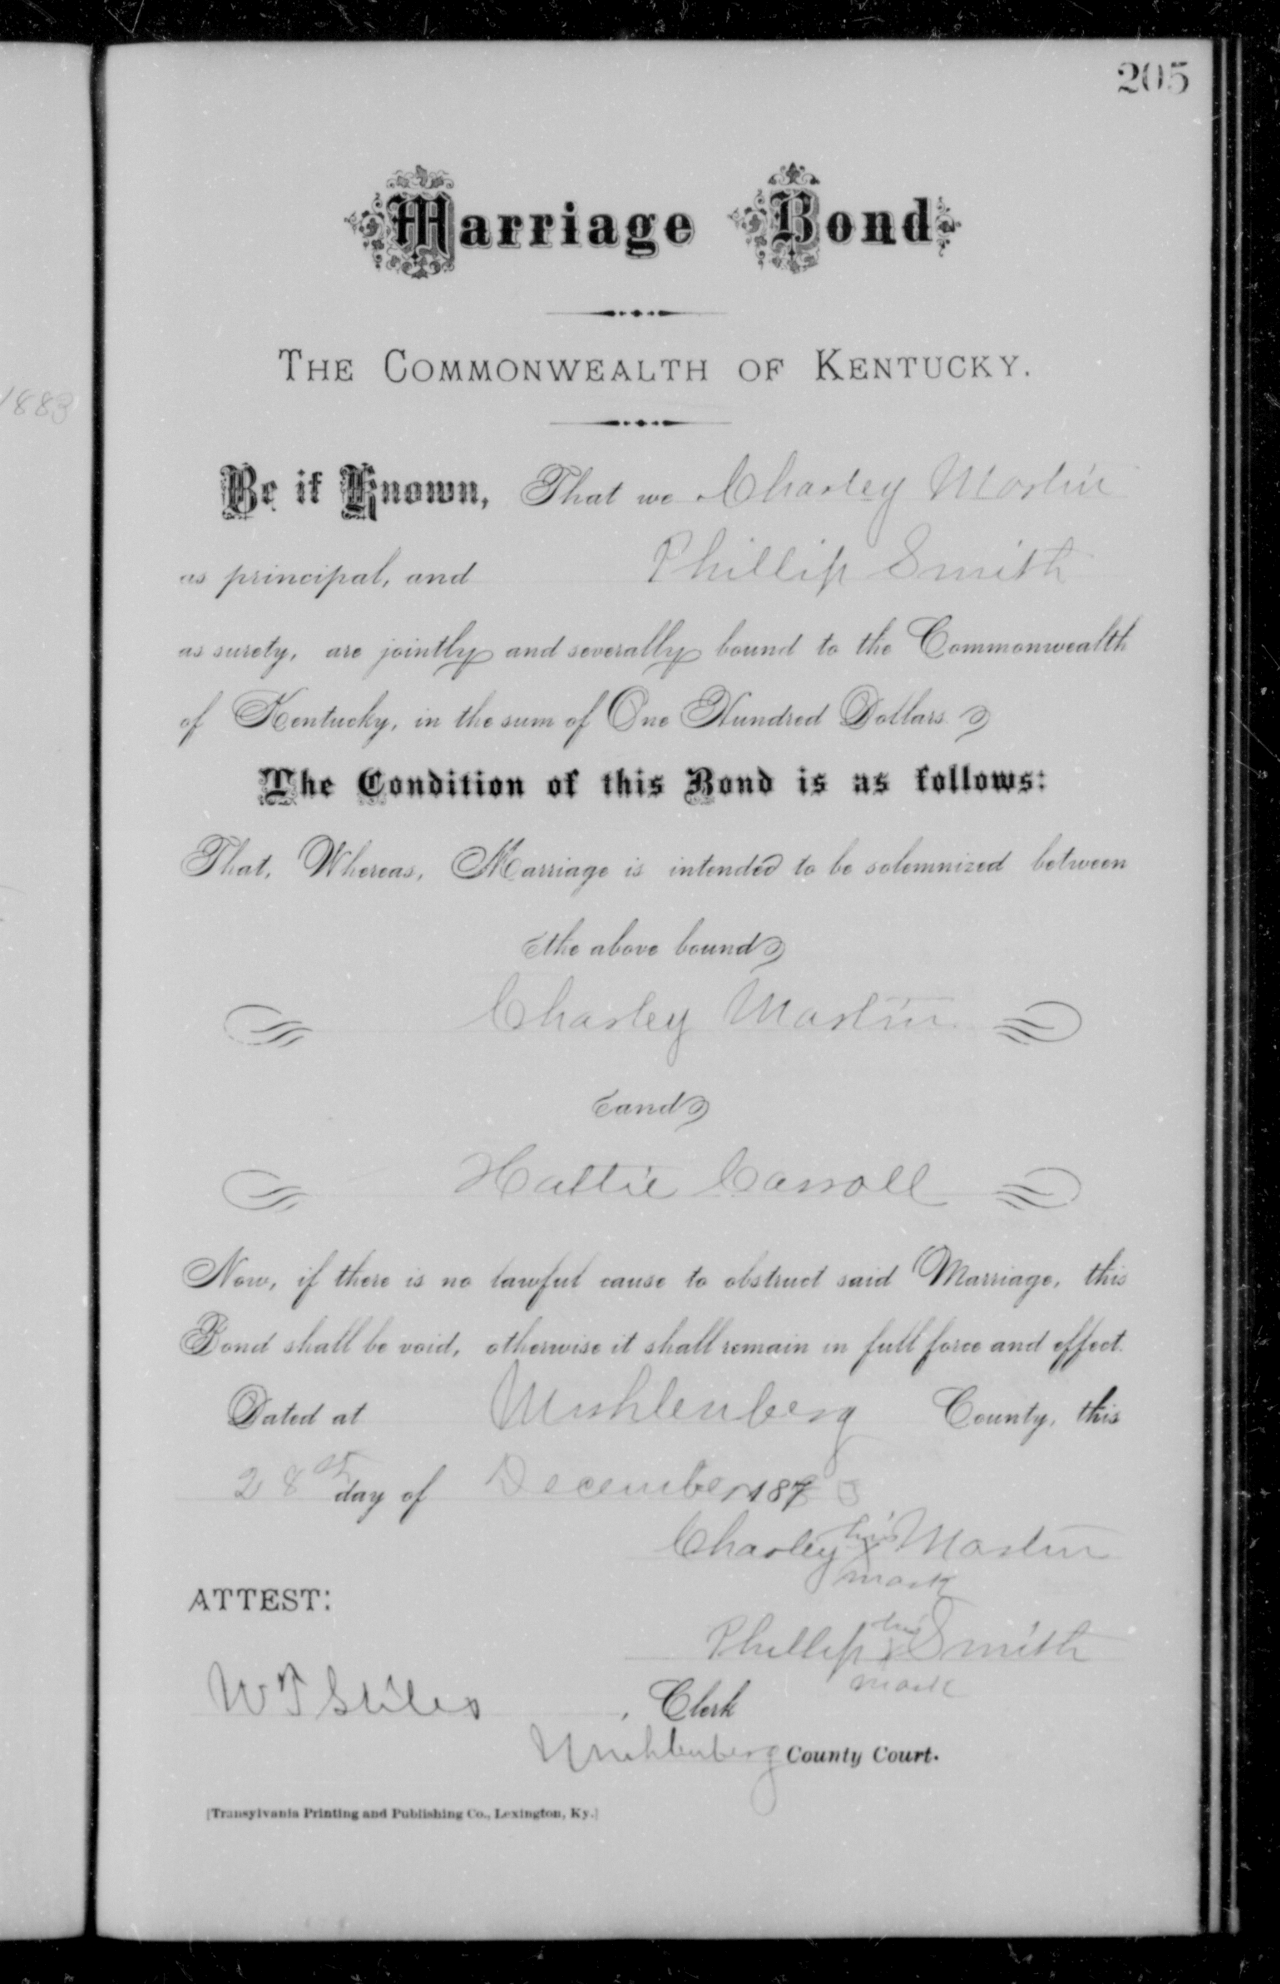 205
Marriage Bond
THE COMMONWEALTH OF KENTUCKY.
1883
Be it Known, That we Charley Martin
as principal, and Phillip Smith
as surety, are jointly and severally bound to the Commonwealth
of Kentucky, in the sum of One Hundred Dollars.
The Condition of this Bond is as follows:
That, Whereas, Marriage is intended to be solemnized between
the above bound
Charley Martin
and
Hattie Carroll
Now, if there is no lawful cause to obstruct said Marriage, this
Bond shall be void, otherwise it shall remain in full force and effect.
Dated at Muhlenberg County, this
28 day of December 1883
Charley his X mark Martin
ATTEST:
Phillip his X mark Smith
W T Stiles, Clerk
Muhlenberg County Court.
[Transylvania Printing and Publishing Co., Lexington, Ky.]